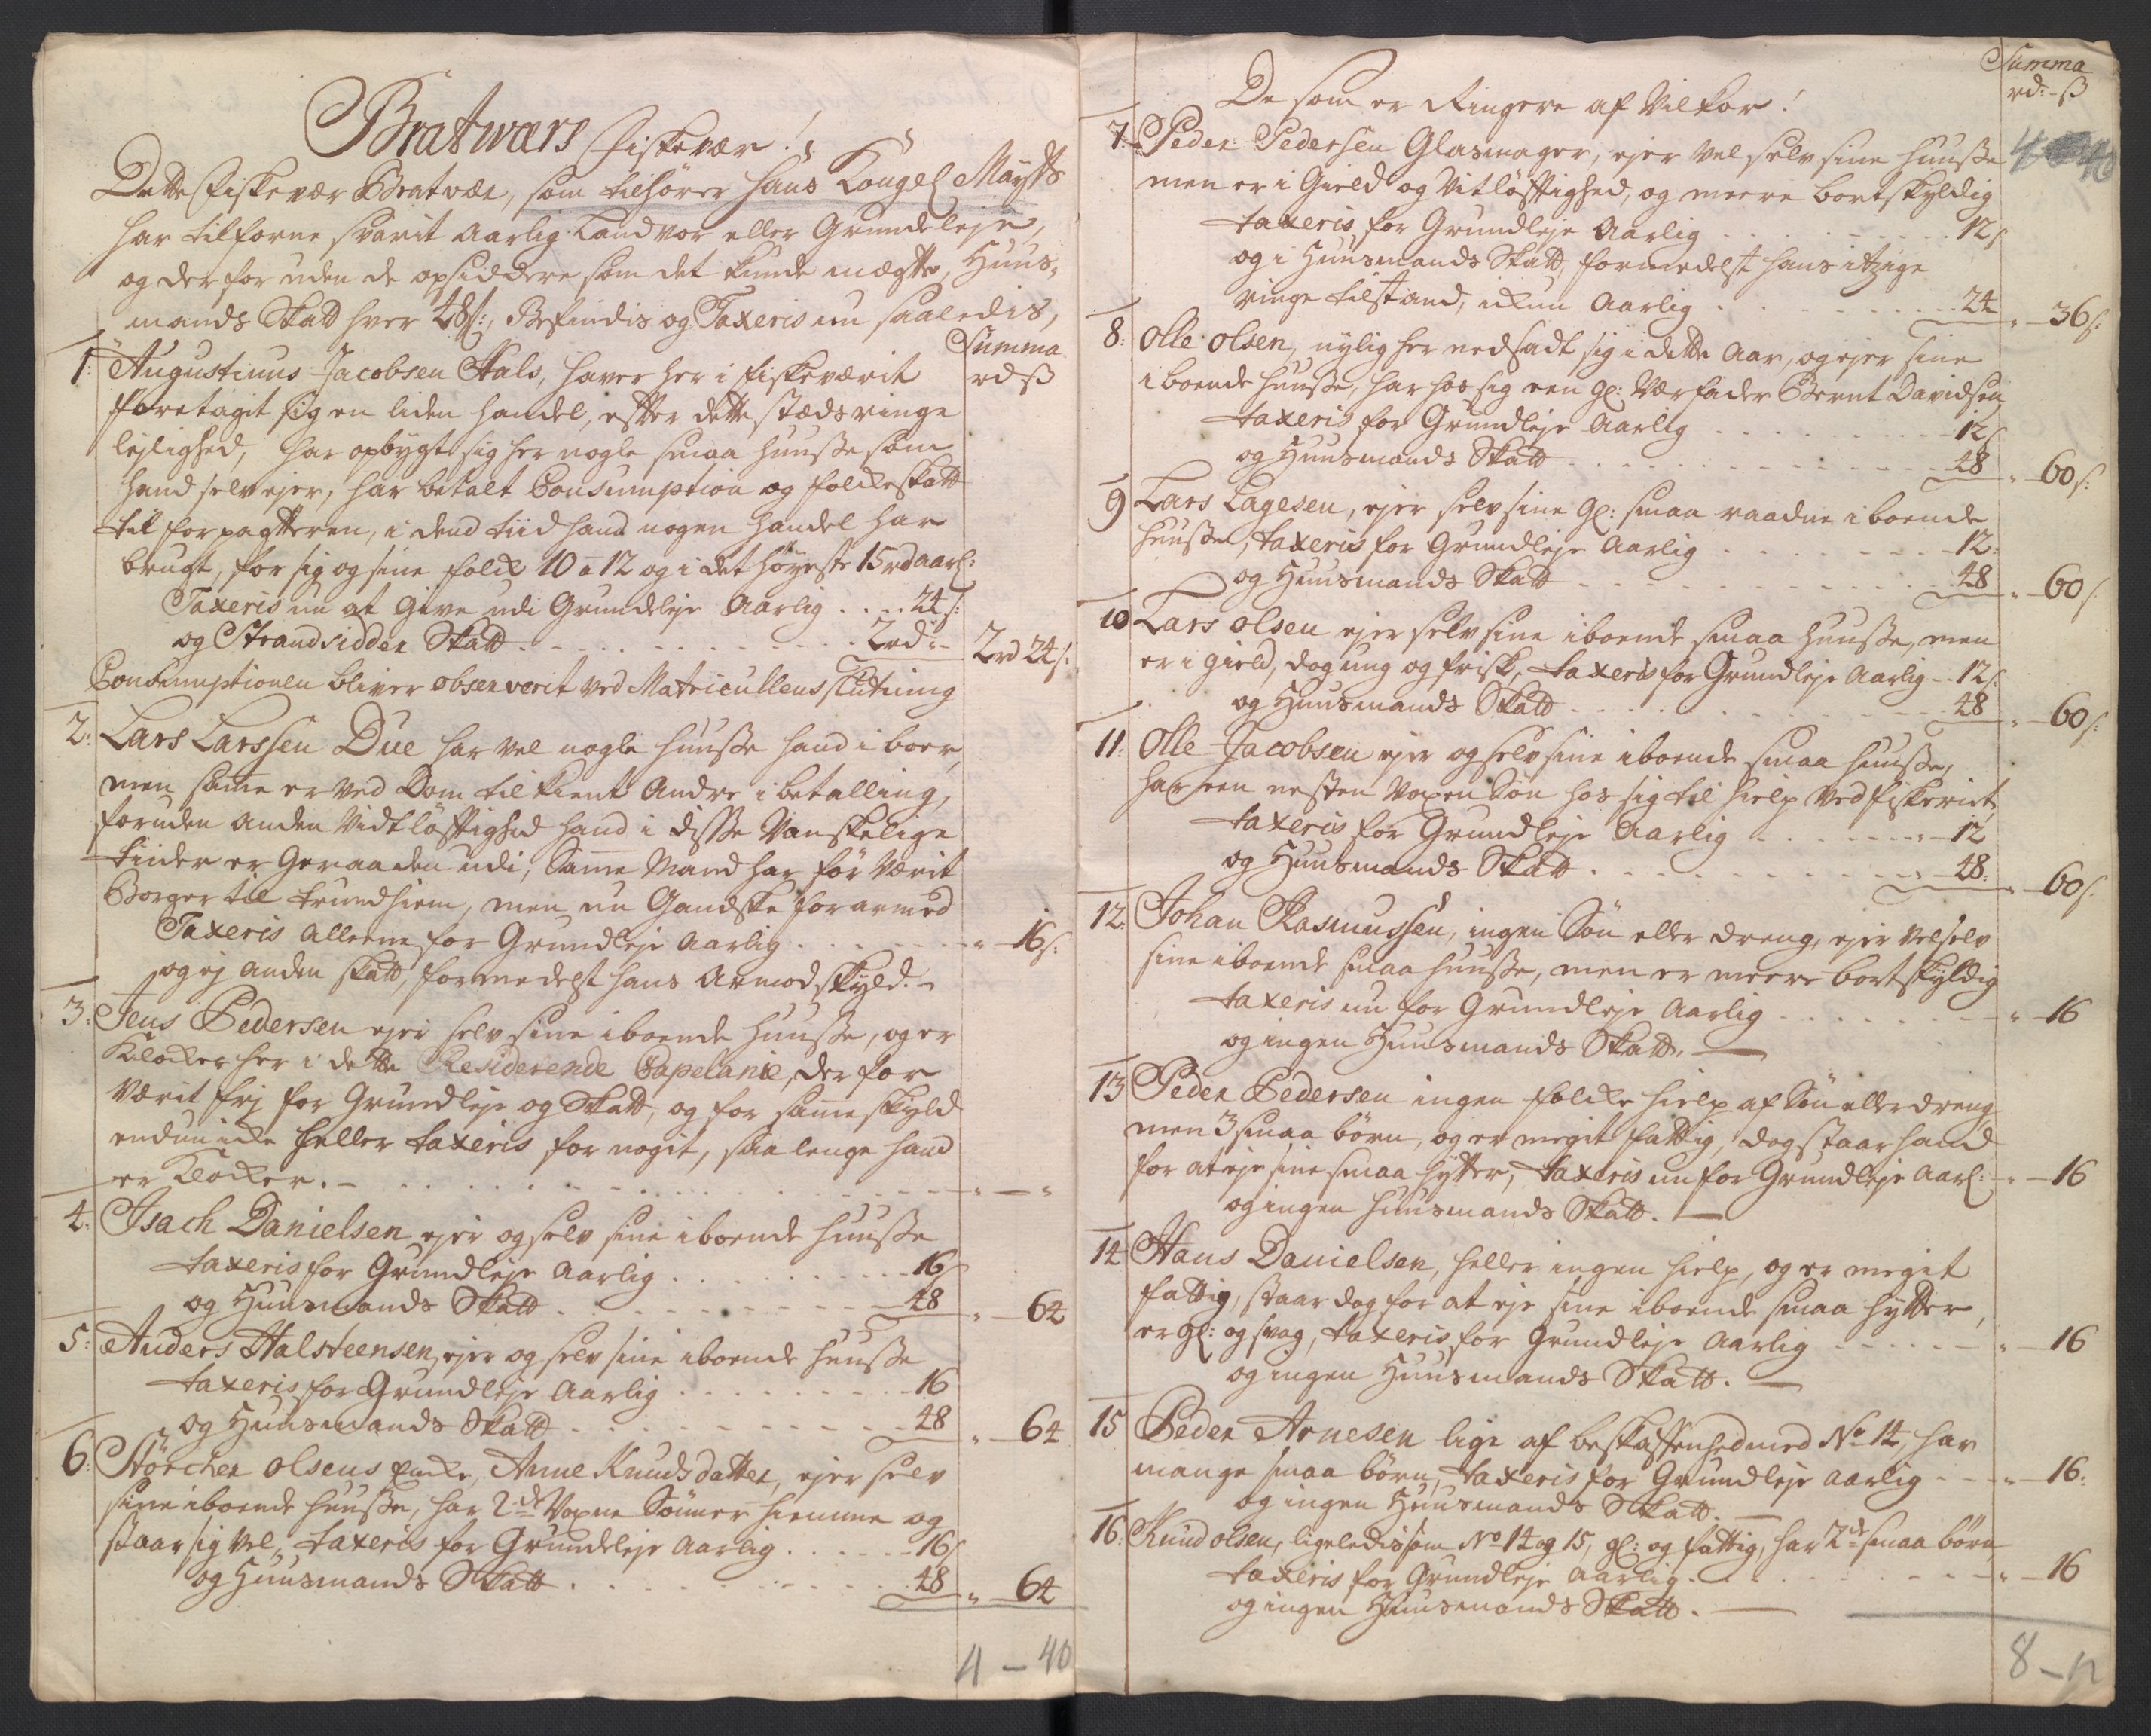 Bratwærs Fiskevær!
Dette Fiskevær Bratvær, som tilhører Hans Kongel Mayts
har tilforne svarit Aarlig Landvor eller Grundeleje,
og der foruden de opsiddere som det kunde mægtte, Huus-
mands Skatt hver 48s:, Befindis og Taxeris nu saaledis,
Summa
rd s
1: Augustinus Jacobsen Hals, haver her i Fiskeværit
foretagit sig en liden handel, efter dette stæds ringe
lejlighed, har opbygt sig her nogle smaa huusse som
hand selv ejer, har betalt Consumption og folckeskatt
til forpagtteren, i dend tiid hand nogen handel har
brugt, for sig og sine folck 10 a 12 og i det høyeste 15 rd aarl:
Taxeris nu at Give udi Grundleje Aarlig .... 24s:
og Strandsidder Skatt ........ 2rd:- 2rd 24s:
Consumptionen bliver observerit ved Matricullens slutning
2: Lars Larssen Due har vel nogle huusse hand i boer,
men same er ved Dom tilkient Andre i betalling,
foruden anden Vidtløfftighed hand i disse Vanskelige
tiider er Geraaden udi, Same Mand har før værit
Borger til trundhiem, men nu Gandske forarmed
Taxeris alleene for Grundleje Aarlig ...... " - 16s:
og ej anden skatt, formedelst hans Armod skyld. -
3: Jens Pedersen ejer selv sine iboende huusse, og er
Klocker her i dette Residerende Capelanie, der for
Værit frj for Grundleje og Skatt, og for same skyld
endnu icke heller taxeris for nogit, saa lenge hand
er Klocker. - ........ " — "
4: Isach Danielsen ejer og selv sine iboende huusse
taxeris for Grundleje Aarlig ........ 16s
og Huusmands Skatt ........ 48 " - 64
5: Anders Halsteensen, ejer og selv sine iboende huusse
taxeris for Grundleje Aarlig ........ 16
og Huusmands Skatt ........ 48 " - 64
6: Størcher olsens Encke, Anne Knudsdatter, ejer selv
sine iboende huusse, har 2de Voxne Sønner hiemme og
staar sig vel, taxeris for Grundeleje Aarlig ..... 16s
og Huusmands Skatt ........ 48 " - 64
4 - 40
Summa
rd:- s
De som er Ringere af Vilkor!
4 40
7: Peder Pedersen Glasmager, ejer vel selv sine huusse
men er i Gield og Vitløfftighed, og meere bortskyldig
taxeris for Grundleje Aarlig ........ 12s
og i Huusmands Skatt, formedelst hans itzige
ringe tilstand, ickun Aarlig ........ 24 " - 36s:
8: Olle olsen, nylig her nedsadt sig i dette Aar, og ejer sine
iboende huusse, har hos sig een gl: Værfader Bernt Davidsen,
taxeris for Grundleje Aarlig ........ 12s
og Huusmands Skatt ........ 48 " - 60s:
9 Lars Lagesen, ejer selv sine gl: smaa raadne iboende
huusse, taxeris for Grundleje Aarlig ....... 12:
og Huusmands Skatt ........ 48 " - 60s
10 Lars olsen ejer selv sine iboende smaa huusse, men
er i gield, dog ung og frisk, taxeris for Grundleje Aarlig - 12s:
og Huusmands Skatt ........ 48 " - 60s:
11: Olle Jacobsen ejer og selv sine iboende smaa huusse,
har een nesten Voxen Søn hos sig til hielp ved fiskeriet,
taxeris for Grundleje Aarlig ....... 12
og Huusmands Skatt ........ 48: " - 60s.
12: Johan Rasmussen, ingen Søn eller dreng, ejer vel selv
sine iboende smaa huusse, men er meere bortskyldig
taxeris nu for Grundleje Aarlig ....... " - 16
og ingen Huusmands Skatt. —
13 Peder Pedersen ingen folcke hielp af Søn eller dreng,
men 3 smaa børn, og er megit fattig, dog staar hand
for at eje sine smaa hytter, taxeris nu for Grundleje Aarl: - " - 16
og ingen huusmands Skatt. —
14 Hans Danielsen, heller ingen hielp, og er megit
fattig, staar dog for at eje sine iboende smaa hytter,
er gl: og svag, taxeris for Grundleje Aarlig ...... " - 16
og ingen Huusmands Skatt. —
15 Peder Arnesen lige af beskaffenhed med No 14, har
mange smaa børn, taxeris for Grundleje Aarlig ... " - 16:
og ingen Huusmands Skatt. —
16: Knud olsen, ligeledis som No 14 og 15, gl: og fattig, har 2de smaa børn
taxeris for Grundleje Aarlig ........ " - 16
og ingen Huusmands Skatt. —
8 - 12